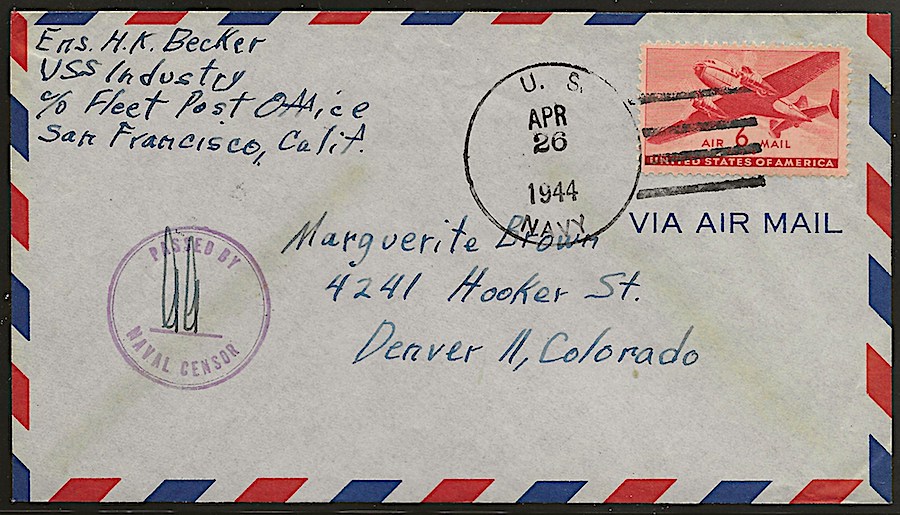 Ens. H.K. Becker
USS Industry
c/o Fleet Post Office
San Francisco, Calif.
U. S.
APR
26
1944
NAVY
AIR 6 MAIL
UNITED STATES OF AMERICA
VIA AIR MAIL
PASSED BY
NAVAL CENSOR
Marguerite Brown
4241 Hooker St.
Denver 11, Colorado